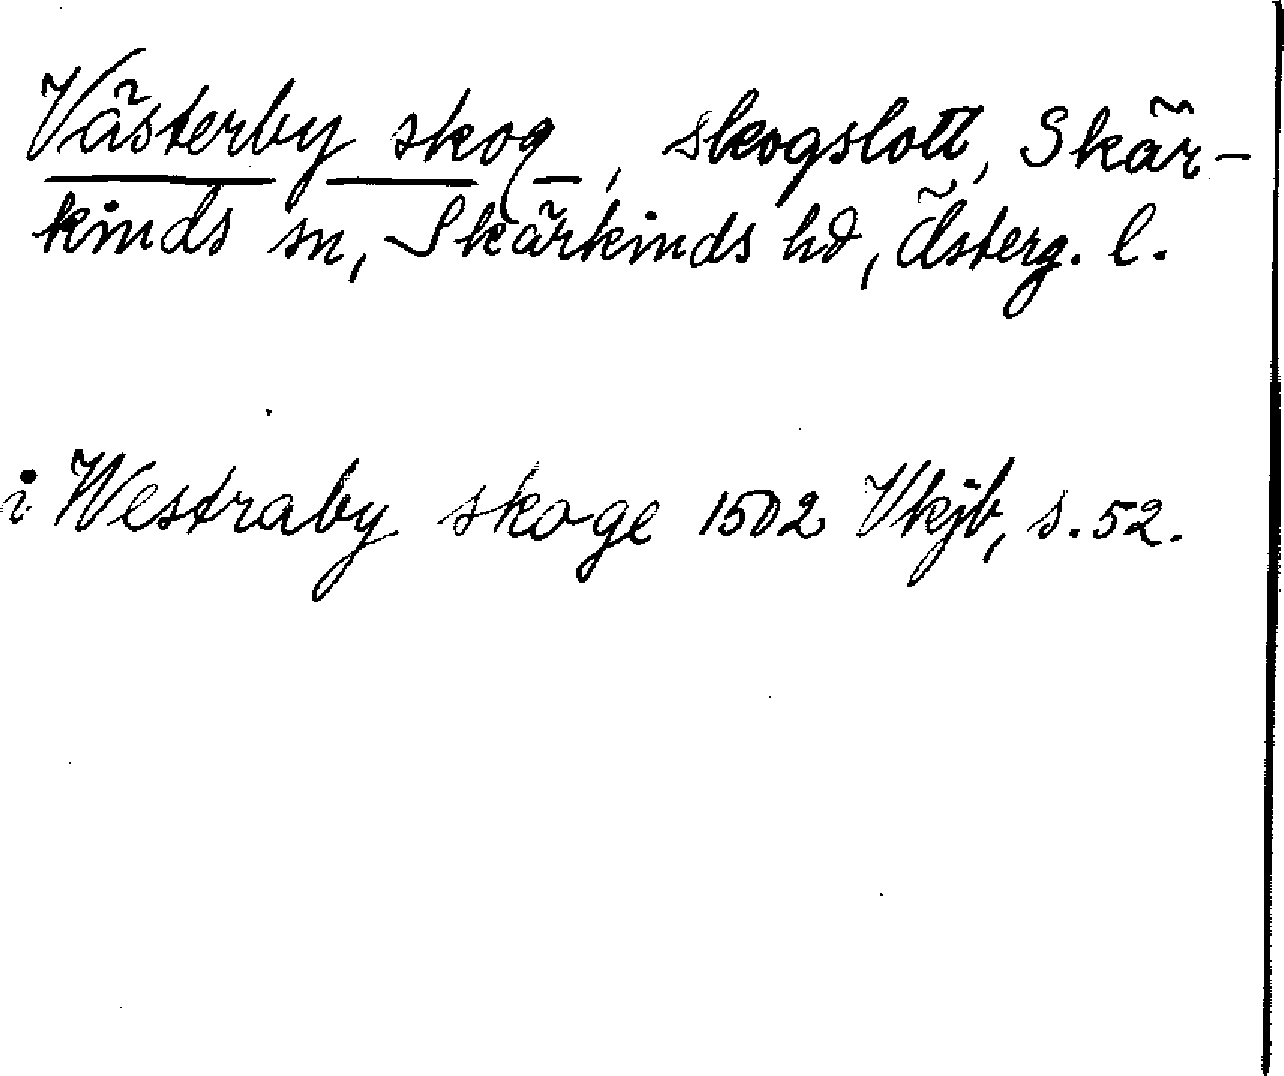 Västerby skog, skogslott, Skär-
kinds sn, Skärkinds hd, Österg. l.
i Westraby skoge 1502 Vkjb, s. 52.